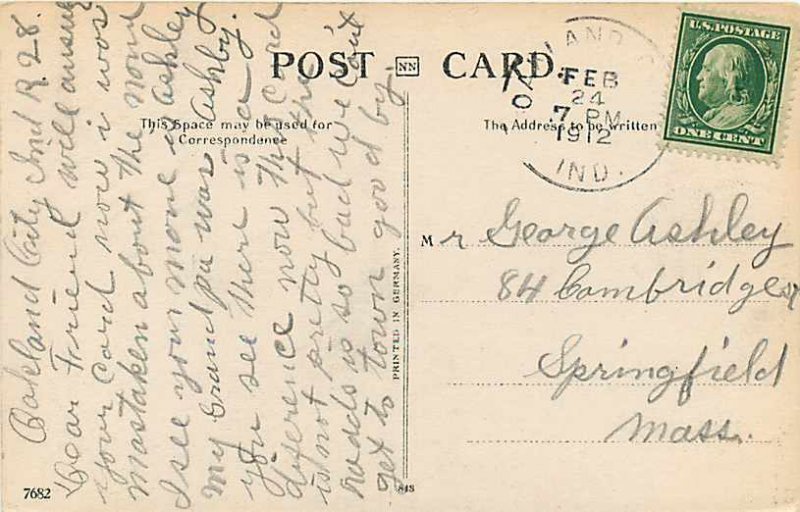 POST NN CARD.
This Space may be used for
Correspondence
The Address to be written
OAKLAND C
FEB
24
7 PM
1912
IND.
U.S. POSTAGE
ONE CENT
Oakland City Ind R. 28.
Dear Friend will answer
your Card now i was
mastaken about the mone
I see your mone is Ashley
my Grand pa was Ashby.
you see there is a
diference now this Card
is not pretty but the
roads is so bad we can't
get to town good by -
Mr George Ashley
84 Combridge st
Springfield
Mass.
PRINTED IN GERMANY.
7682